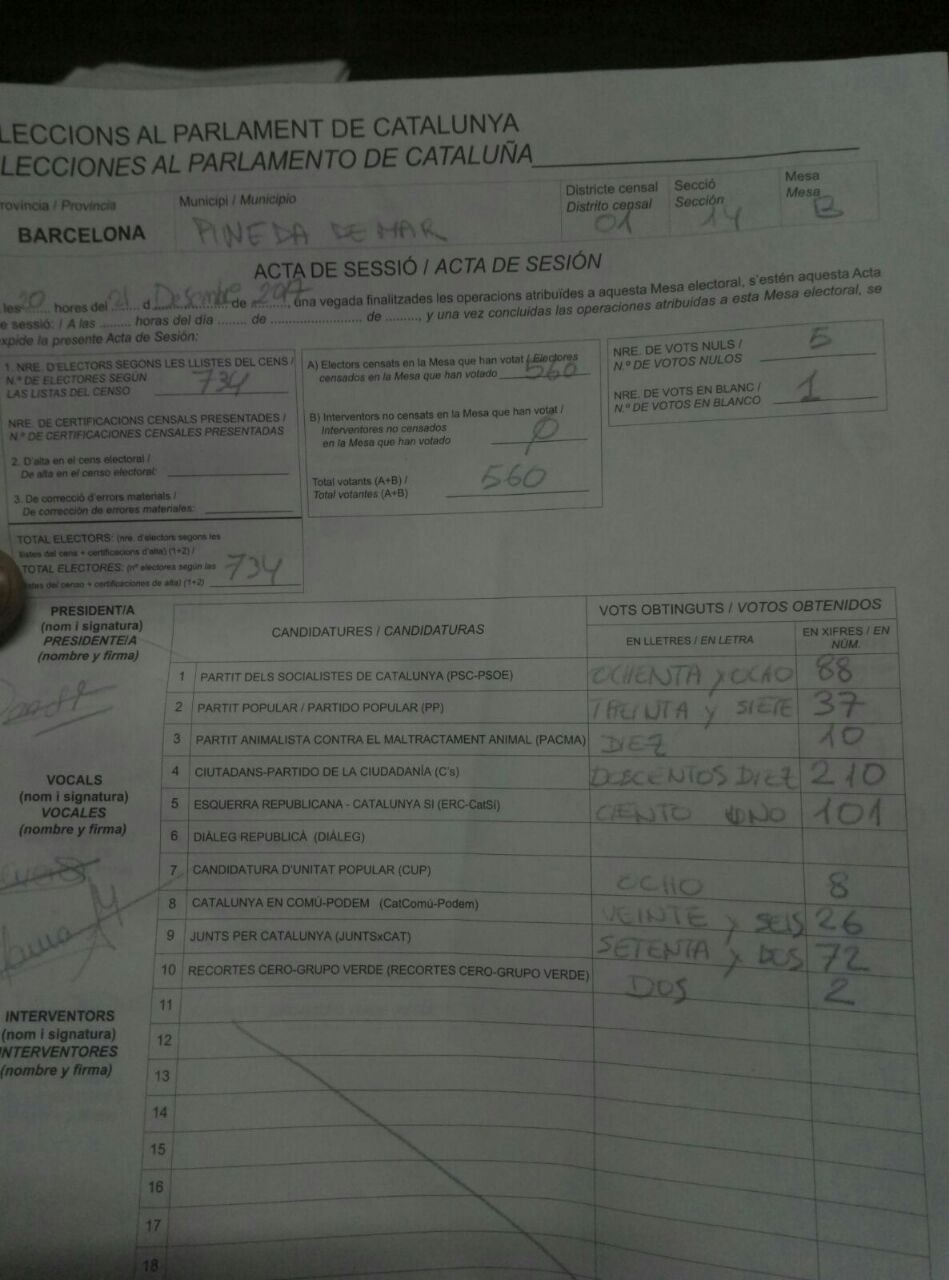 LECCIONS AL PARLAMENT DE CATALUNYA
LECCIONES AL PARLAMENTO DE CATALUÑA
rovíncia / Provincia
BARCELONA
Municipi / Municipio
PINEDA DE MAR
Districte censal
Distrito censal
01
Secció
Sección
14
Mesa
Mesa
B
ACTA DE SESSIÓ / ACTA DE SESIÓN
les 20 hores del 21 d Desembre de 2017, una vegada finalitzades les operacions atribuïdes a aquesta Mesa electoral, s'estén aquesta Acta
e sessió: / A las ........ horas del día ....... de ........................ de ........, y una vez concluidas las operaciones atribuidas a esta Mesa electoral, se
xpide la presente Acta de Sesión:
1. NRE. D'ELECTORS SEGONS LES LLISTES DEL CENS /
N.º DE ELECTORES SEGÚN
LAS LISTAS DEL CENSO 734
NRE. DE CERTIFICACIONS CENSALS PRESENTADES /
N.º DE CERTIFICACIONES CENSALES PRESENTADAS
2. D'alta en el cens electoral /
De alta en el censo electoral:
3. De correcció d'errors materials /
De corrección de errores materiales:
TOTAL ELECTORS: (nre. d'electors segons les
llistes del cens + certificacions d'alta) (1+2) /
TOTAL ELECTORES: (nº electores según las
listas del censo + certificaciones de alta) (1+2) 734
A) Electors censats en la Mesa que han votat / Electores
censados en la Mesa que han votado 560
B) Interventors no censats en la Mesa que han votat /
Interventores no censados
en la Mesa que han votado 0
Total votants (A+B) /
Total votantes (A+B) 560
NRE. DE VOTS NULS /
N.º DE VOTOS NULOS 5
NRE. DE VOTS EN BLANC /
N.º DE VOTOS EN BLANCO 1
PRESIDENT/A
(nom i signatura)
PRESIDENTE/A
(nombre y firma)
VOCALS
(nom i signatura)
VOCALES
(nombre y firma)
INTERVENTORS
(nom i signatura)
INTERVENTORES
(nombre y firma)
CANDIDATURES / CANDIDATURAS
VOTS OBTINGUTS / VOTOS OBTENIDOS
EN LLETRES / EN LETRA
EN XIFRES / EN
NÚM.
1 PARTIT DELS SOCIALISTES DE CATALUNYA (PSC-PSOE) OCHENTA Y OCHO 88
2 PARTIT POPULAR / PARTIDO POPULAR (PP) TREINTA y SIETE 37
3 PARTIT ANIMALISTA CONTRA EL MALTRACTAMENT ANIMAL (PACMA) DIEZ 10
4 CIUTADANS-PARTIDO DE LA CIUDADANÍA (C's) DOSCENTOS DIEZ 210
5 ESQUERRA REPUBLICANA - CATALUNYA SI (ERC-CatSí) CIENTO UNO 101
6 DIÀLEG REPUBLICÀ (DIÀLEG)
7 CANDIDATURA D'UNITAT POPULAR (CUP) OCHO 8
8 CATALUNYA EN COMÚ-PODEM (CatComú-Podem) VEINTE y SEIS 26
9 JUNTS PER CATALUNYA (JUNTSxCAT) SETENTA y DOS 72
10 RECORTES CERO-GRUPO VERDE (RECORTES CERO-GRUPO VERDE) DOS 2
11
12
13
14
15
16
17
18